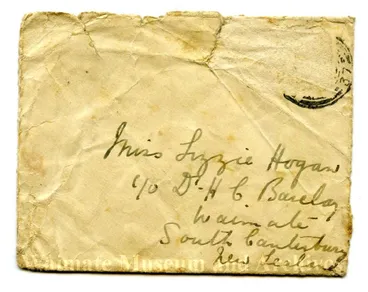 Miss Lizzie Hogan
c/o Dr H C Barclay
Waimate
South Canterbury
New Zealand
Waimate Museum and Archives